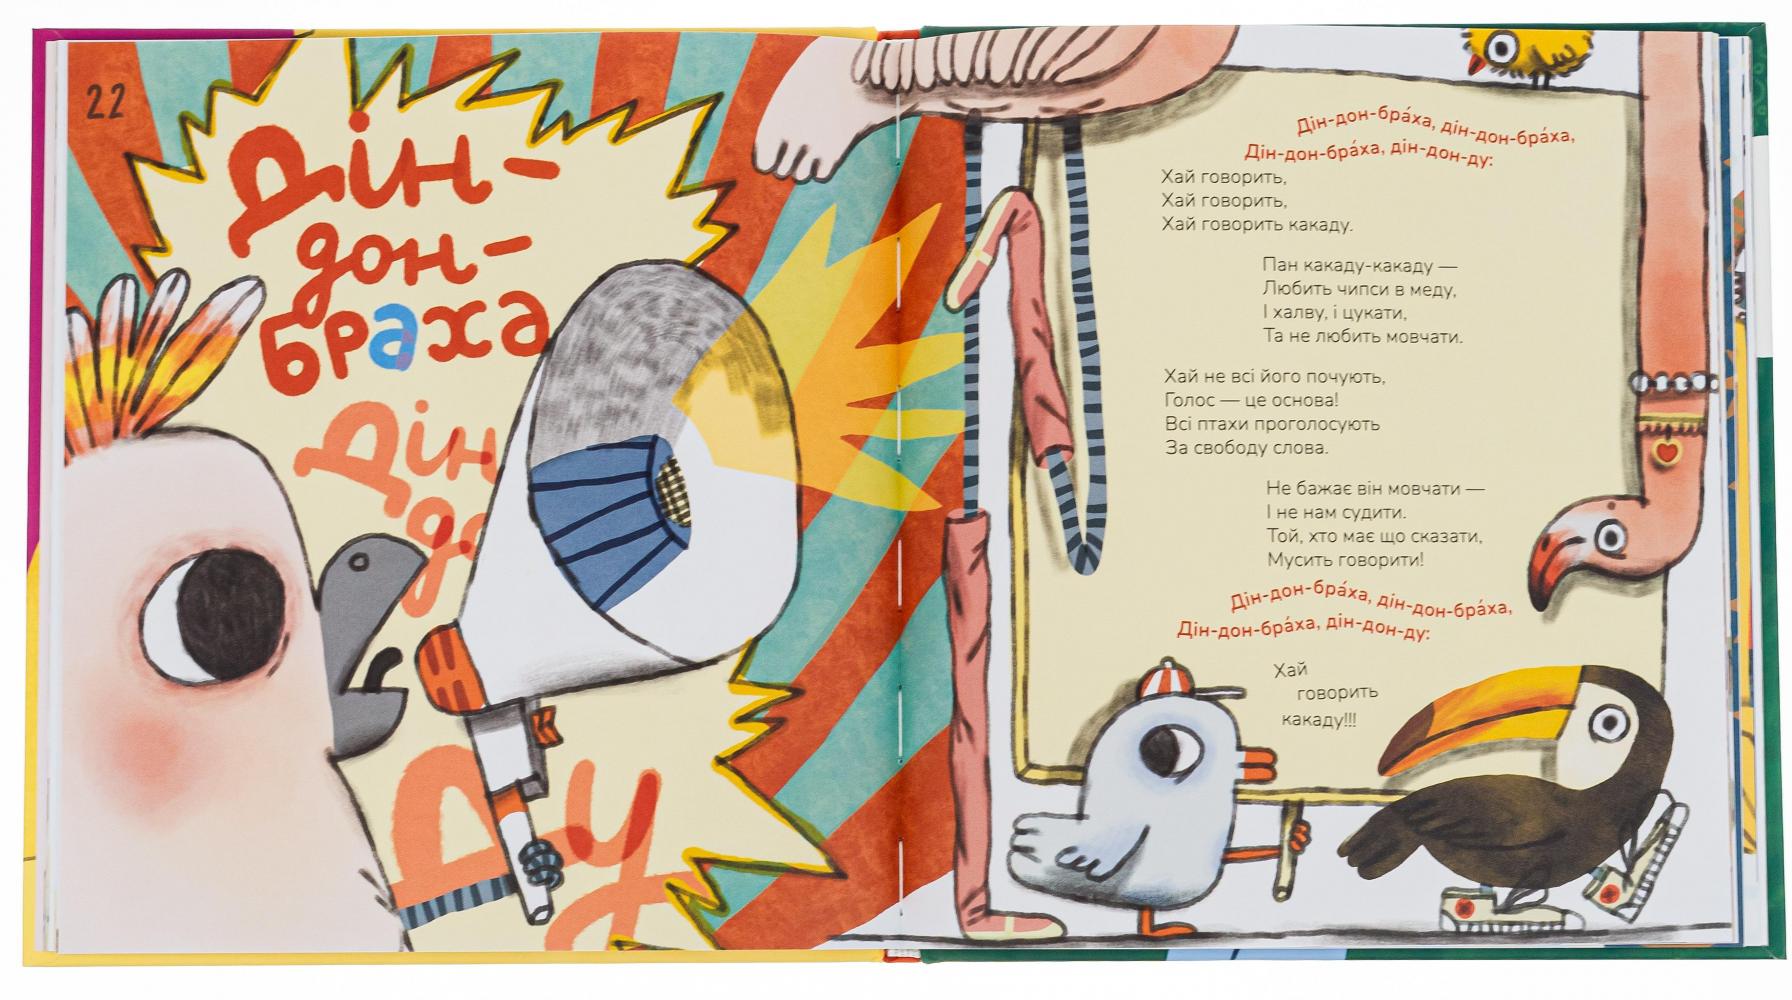 22
Дін-
дон-
браха
Дін
до
Ду
Дін-дон-бра́ха, дін-дон-бра́ха,
Дін-дон-бра́ха, дін-дон-ду:
Хай говорить,
Хай говорить,
Хай говорить какаду.
Пан какаду-какаду —
Любить чипси в меду,
І халву, і цукати,
Та не любить мовчати.
Хай не всі його почують,
Голос — це основа!
Всі птахи проголосують
За свободу слова.
Не бажає він мовчати —
І не нам судити.
Той, хто має що сказати,
Мусить говорити!
Дін-дон-бра́ха, дін-дон-бра́ха,
Дін-дон-бра́ха, дін-дон-ду:
Хай
говорить
какаду!!!